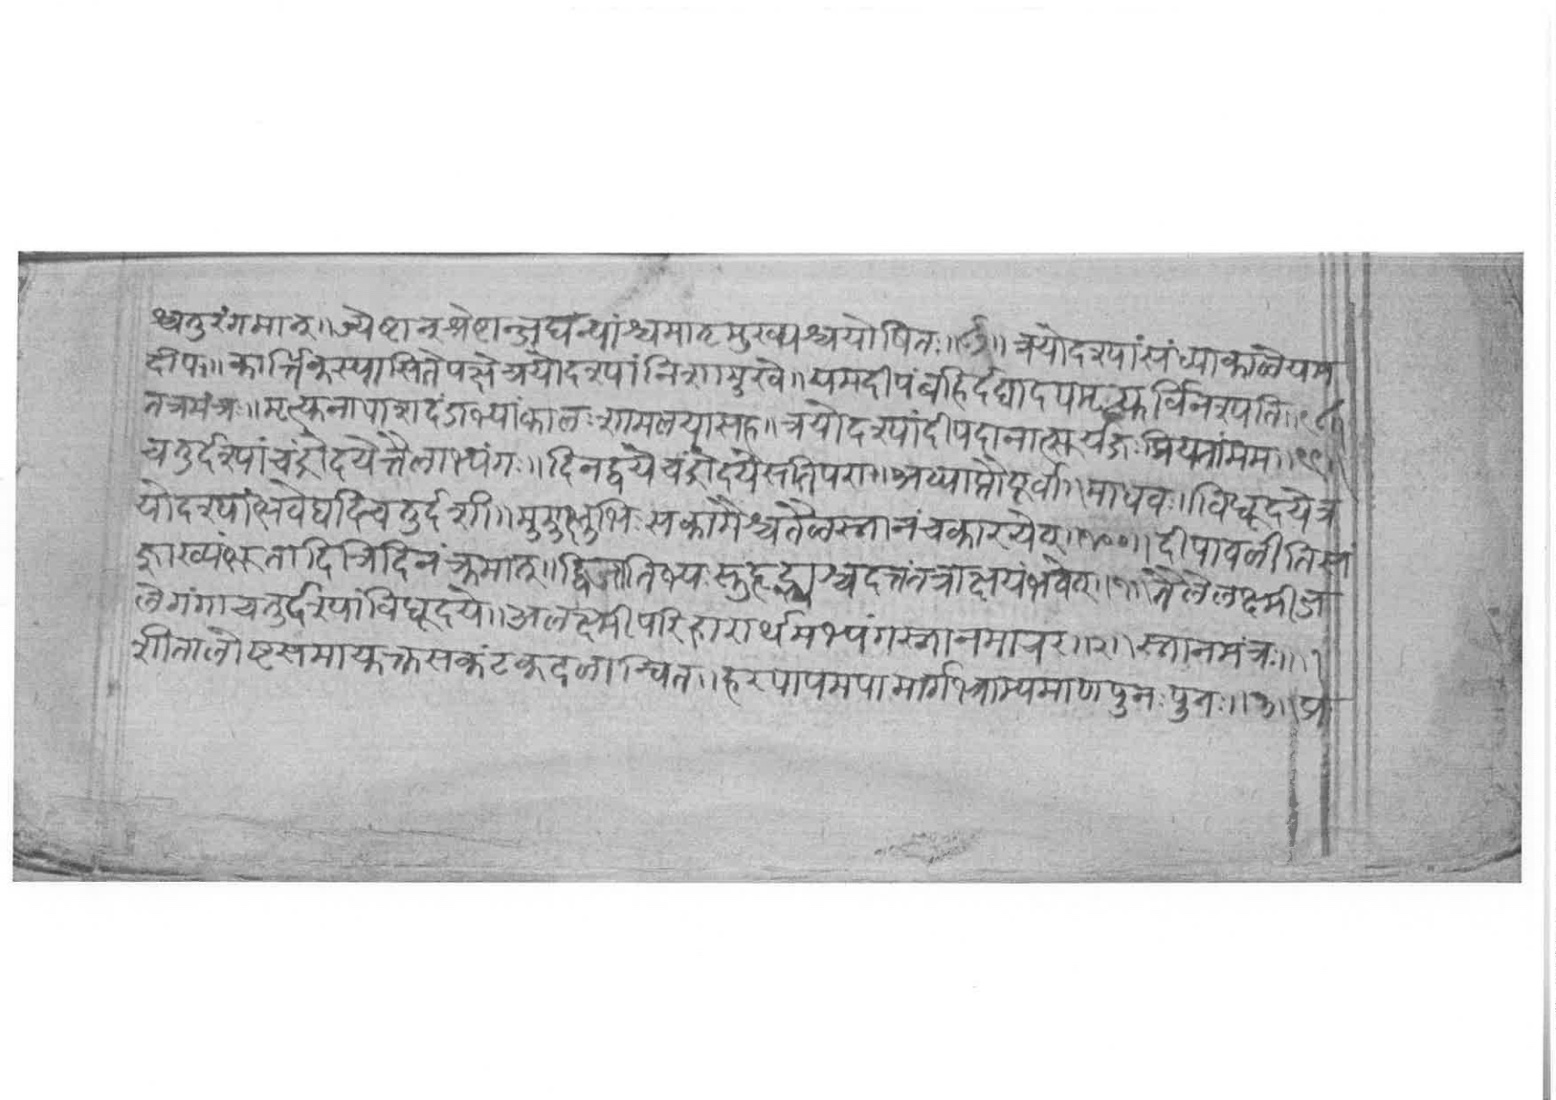 श्चतुरंगमान्॥ज्येष्टान्श्रेष्टान्जघन्यांश्चमातृमुख्यश्चयोषितः॥९७॥त्रयोदश्यांसंध्याकाळेयम
दीपः॥कार्त्तिकस्यासितेपक्षेत्रयोदश्यांनिशामुखे॥यमदीपंबहिर्दद्यादपमृत्युर्विनश्यति॥९८॥
तत्रमंत्रः॥मृत्युनापाशदंडाभ्यांकालःशामलयासह॥त्रयोदश्यांदीपदानात्सूर्यजःप्रियतांमम॥९९॥
चतुर्दश्यांचंद्रोदयेतैलाभ्यंगः॥दिनद्वयेचंद्रोदयेसतिपरा॥अव्याप्तौपूर्वा॥माधवः॥विधूदयेत्र
योदश्यांत्सवेद्यदिचतुर्दशी॥मुमुक्षुभिःसकामैश्चतैळस्नानंचकारयेत्॥१००॥दीपावळीतिसं
ज्ञाख्यंभूतादित्रिदिनंक्रमात्॥द्विजातिभ्यःसुहृद्भ्यश्चदत्तंतत्राक्षयंभवेत्॥१॥तैलेलक्ष्मीज
लेगंगाचतुर्दश्यांविधूदये॥अलक्ष्मीपरिहारार्थमभ्यंगस्नानमाचरे॥२॥स्नानमंत्रः॥
शीतालोष्टसमायुक्तसकंटकदळान्वित॥हरपापमपामार्गभ्राम्यमाणपुनःपुनः॥३॥प्र